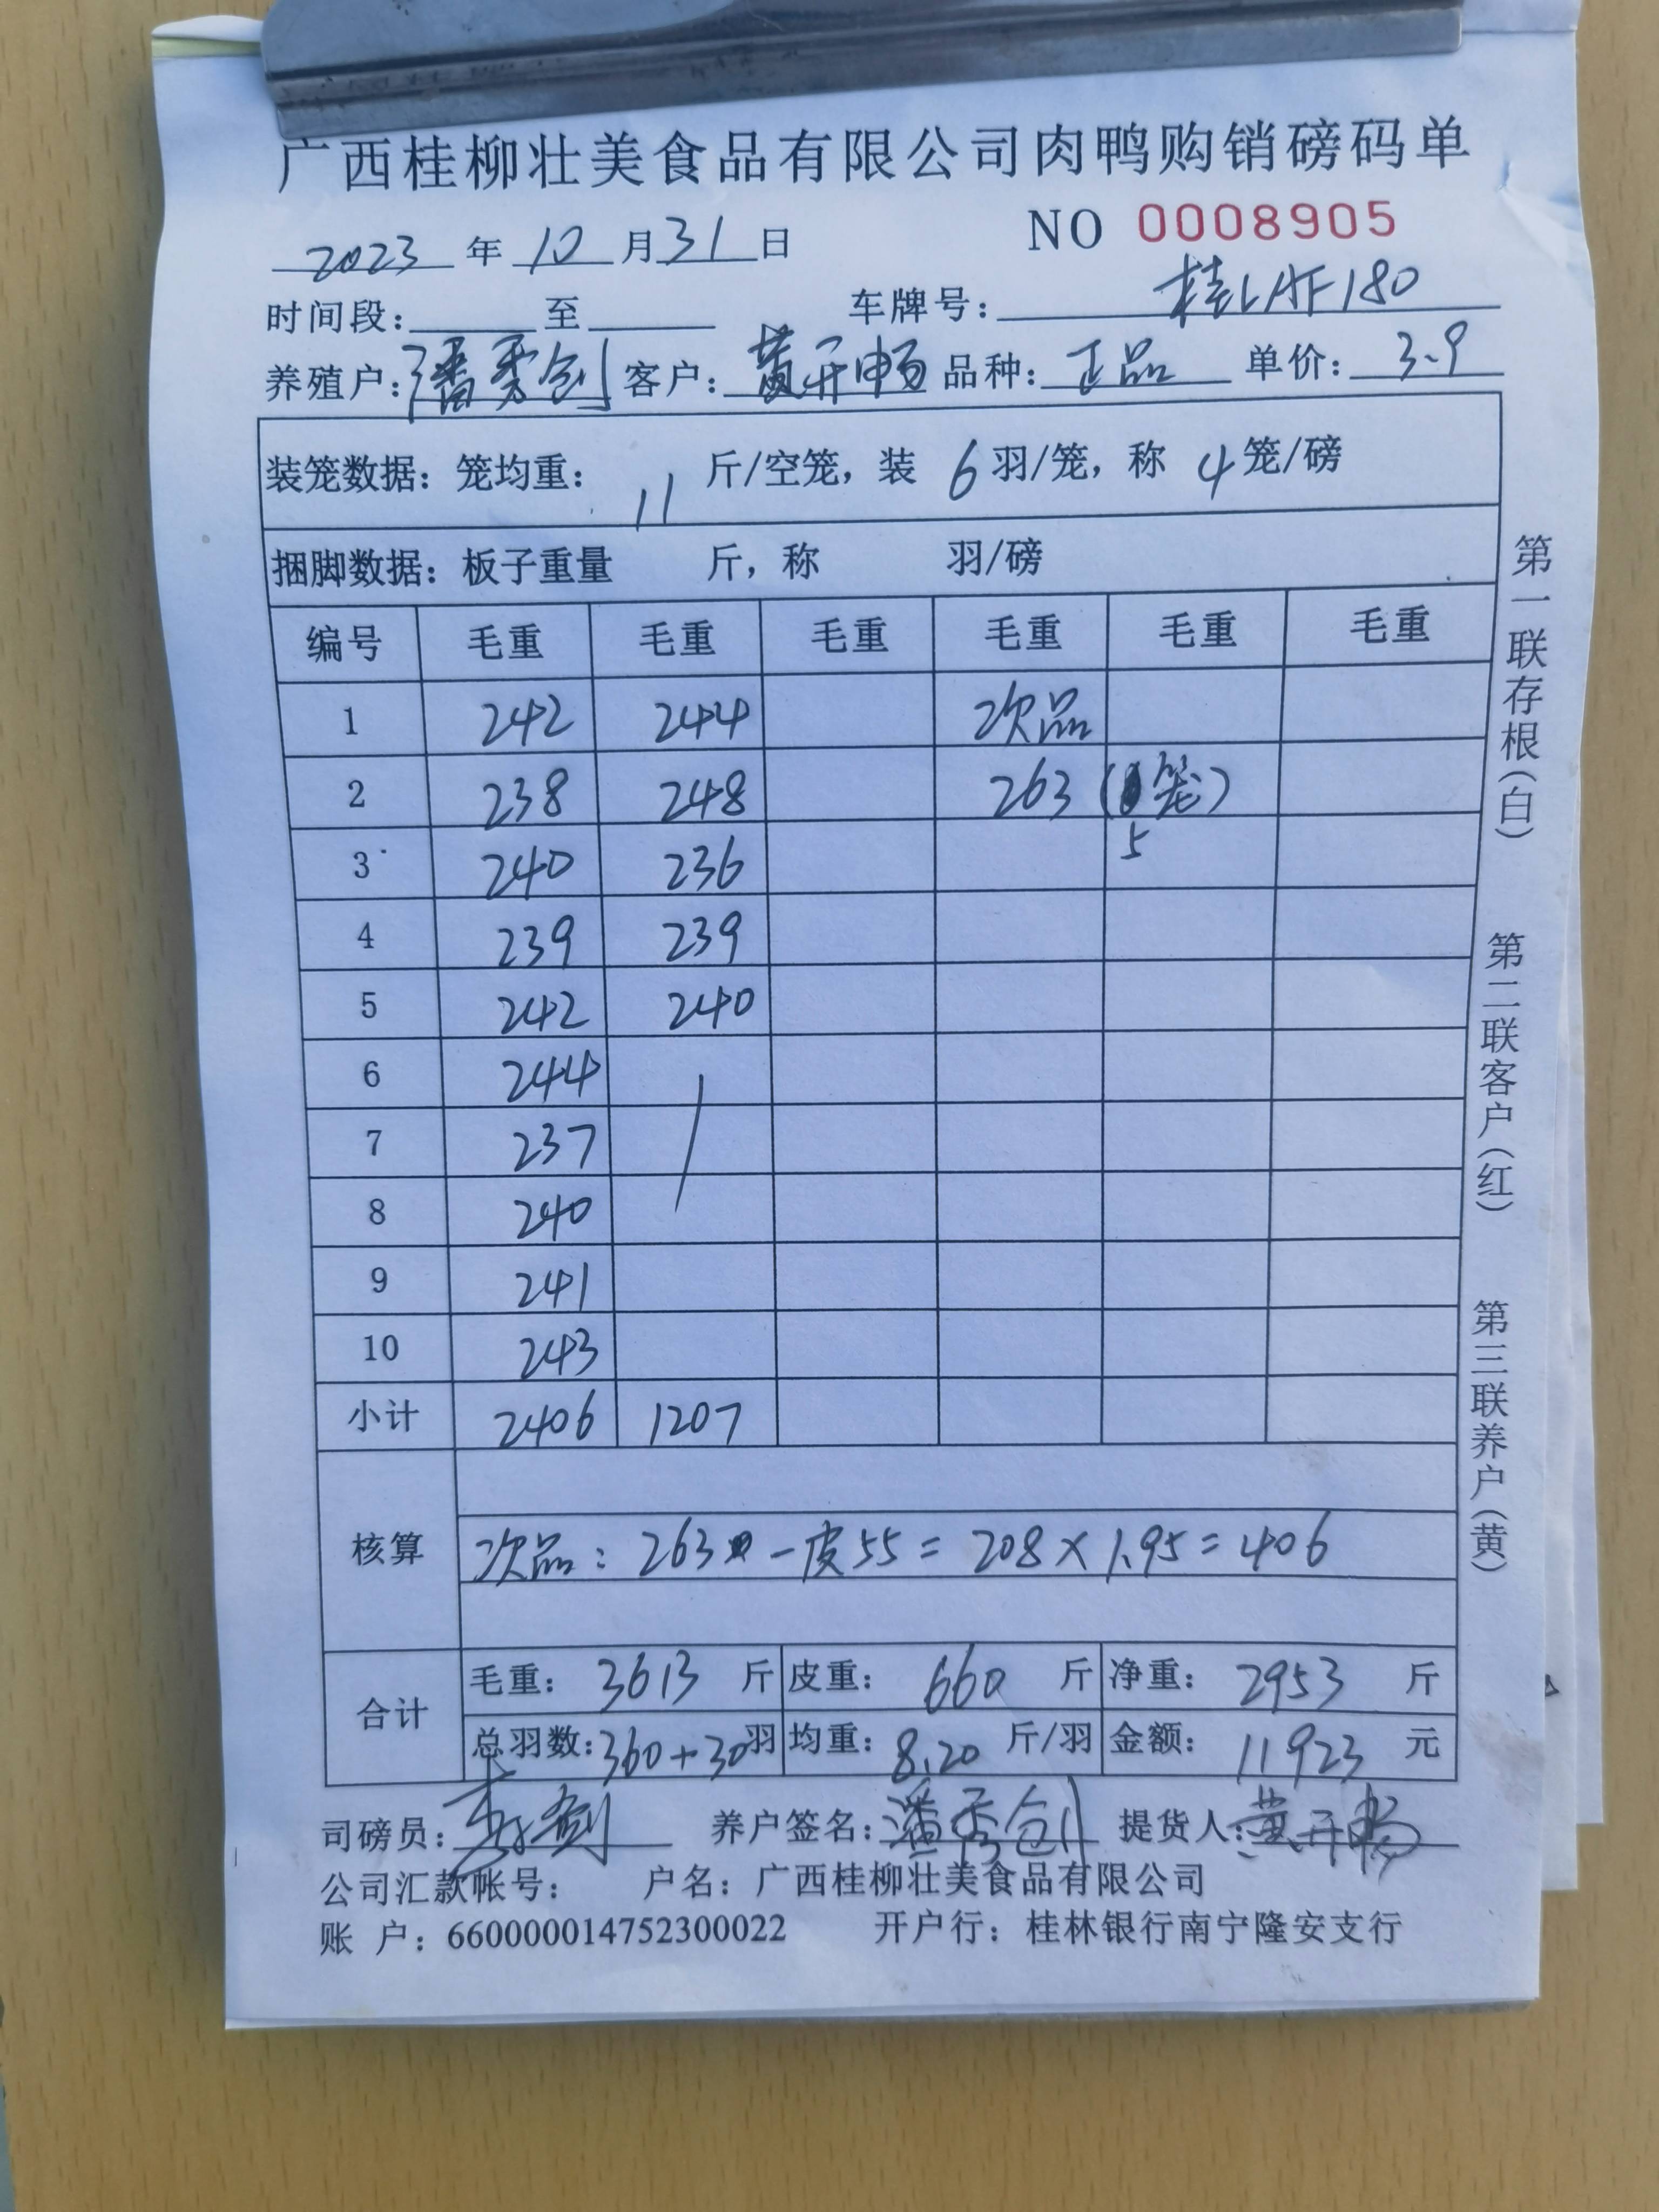 广西桂柳壮美食品有限公司肉鸭购销磅码单
2023 年 10 月 31 日 NO 0008905
时间段: 至 车牌号: 桂LAF180
养殖户: 潘秀剑 客户: 黄开畅 品种: 正品 单价: 3.9
装笼数据: 笼均重: 11 斤/空笼, 装 6 羽/笼, 称 4 笼/磅
捆脚数据: 板子重量 斤, 称 羽/磅
编号 毛重 毛重 毛重 毛重 毛重 毛重
1 242 244 次品
2 238 248 263 (笼)
5
3 240 236
4 239 239
5 242 240
6 244
7 237
8 240
9 241
10 243
小计 2406 1207
核算 次品: 263 - 皮55 = 208 × 1.95 = 406
合计 毛重: 3613 斤 皮重: 660 斤 净重: 2953 斤
总羽数: 360+30 羽 均重: 8.20 斤/羽 金额: 11923 元
司磅员: 养户签名: 潘秀剑 提货人: 黄开畅
公司汇款帐号: 户名: 广西桂柳壮美食品有限公司
账 户: 660000014752300022 开户行: 桂林银行南宁隆安支行
第一联存根(白) 第二联客户(红) 第三联养户(黄)